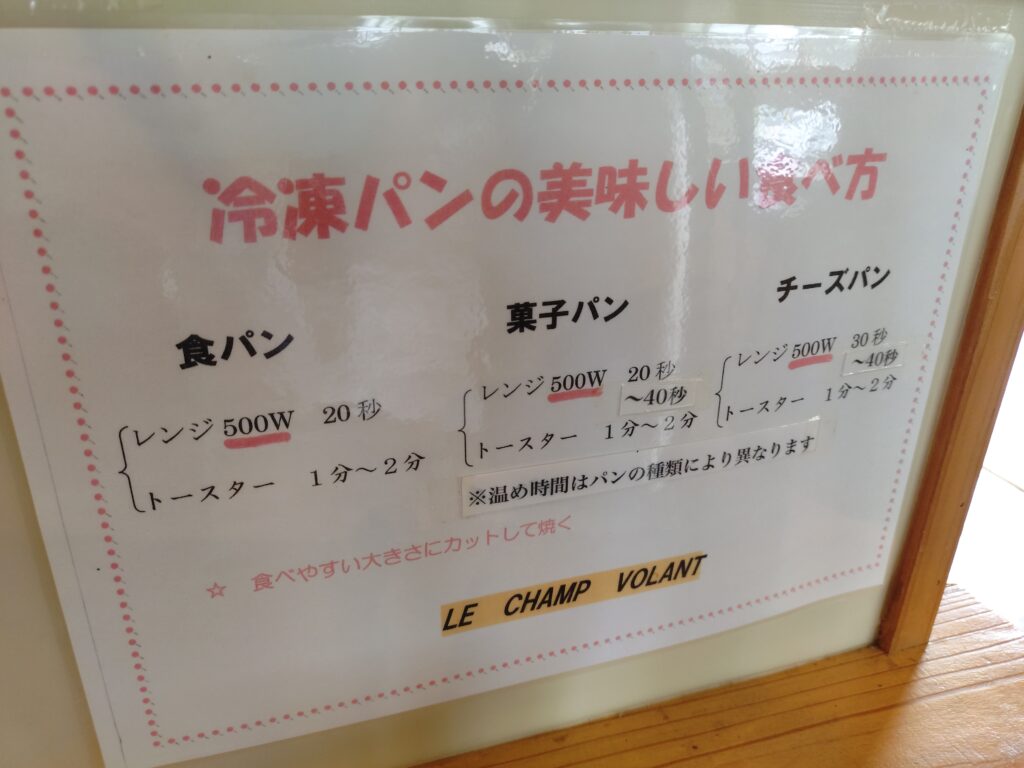 冷凍パンの美味しい食べ方
食パン
レンジ 500W 20秒
トースター 1分～2分
菓子パン
レンジ 500W 20秒
～40秒
トースター 1分～2分
チーズパン
レンジ 500W 30秒
～40秒
トースター 1分～2分
※温め時間はパンの種類により異なります
☆ 食べやすい大きさにカットして焼く
LE CHAMP VOLANT